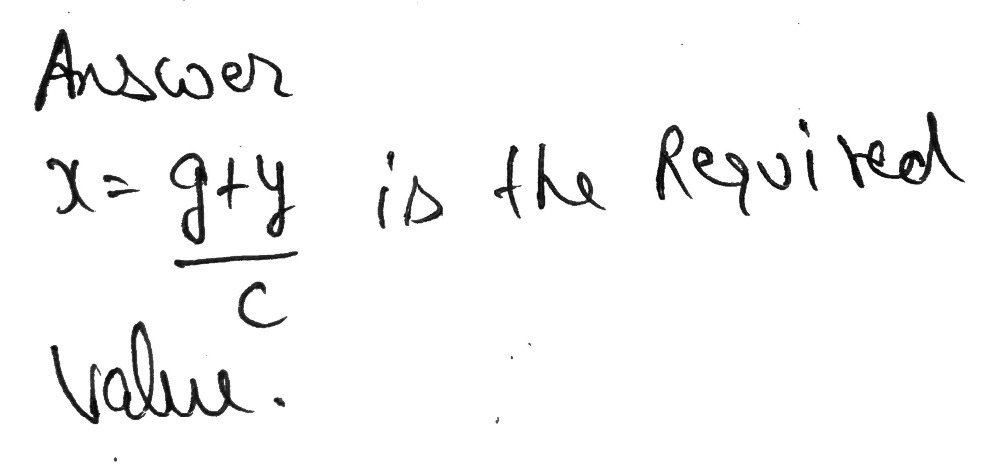 Answer
x = g+y/c is the Required
Value.